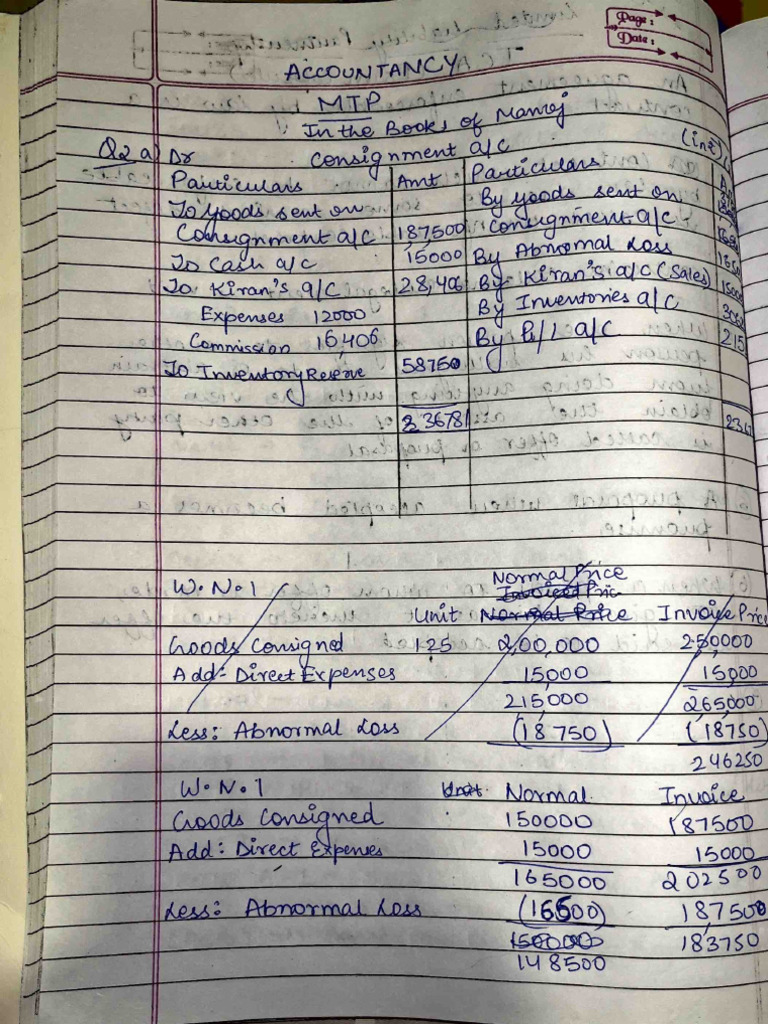 Page :
Date :
ACCOUNTANCY
MTP
In the Books of Manoj
Q2 a) Dr Consignment a/c (in ₹)
Particulars Amt Particulars
To goods sent on By goods sent on
Consignment a/c 187500 Consignment a/c
To Cash a/c 15000 By Abnormal Loss
To Kiran's a/c 28,406 By Kiran's a/c (Sales)
Expenses 12000 By Inventories a/c
Commission 16,406 By P/L a/c
To Inventory Reserve 58750
236781
W.N.1 Normal Price
Invoiced Price
Unit Normal Price Invoice Price
Goods Consigned 1.25 2,00,000 250000
Add:- Direct Expenses 15,000 15,000
215,000 265000
Less: Abnormal Loss (18,750) (18750)
246250
W.N.1 Unit Normal Invoice
Goods Consigned 150000 187500
Add:- Direct Expenses 15000 15000
165000 202500
Less: Abnormal Loss (16500) 18750
150000 183750
148500